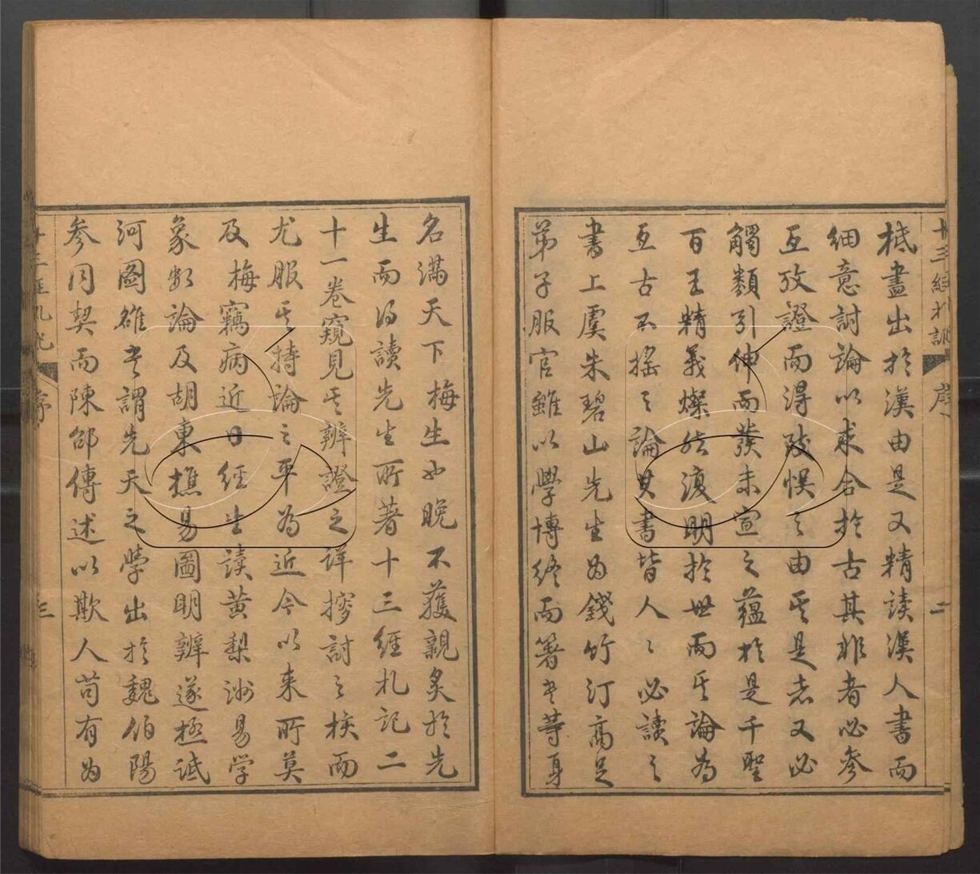 十三經札記
序
二
柢盡出於漢由是又精讀漢人書而
細意討論以求合於古其非者必參
互攷證而得致悞之由其是者又必
觸類引伸而發未宣之蘊於是千聖
百王精義燦然復明於世而其論為
亙古不搖之論其書皆人人必讀之
書上虞朱碧山先生為錢竹汀高足
弟子服官雖以學博終而箸書等身
名滿天下梅生也晚不獲親炙於先
生而得讀先生所著十三經札記二
十一卷窺見其辨證之詳探討之核而
尤服其持論之平為近今以來所莫
及梅竊病近日經生讀黃梨洲易學
象數論及胡東樵易圖明辨遂極詆
河圖雒書謂先天之學出於魏伯陽
參同契而陳邵傳述以欺人苟有為
十三經札記
序
三